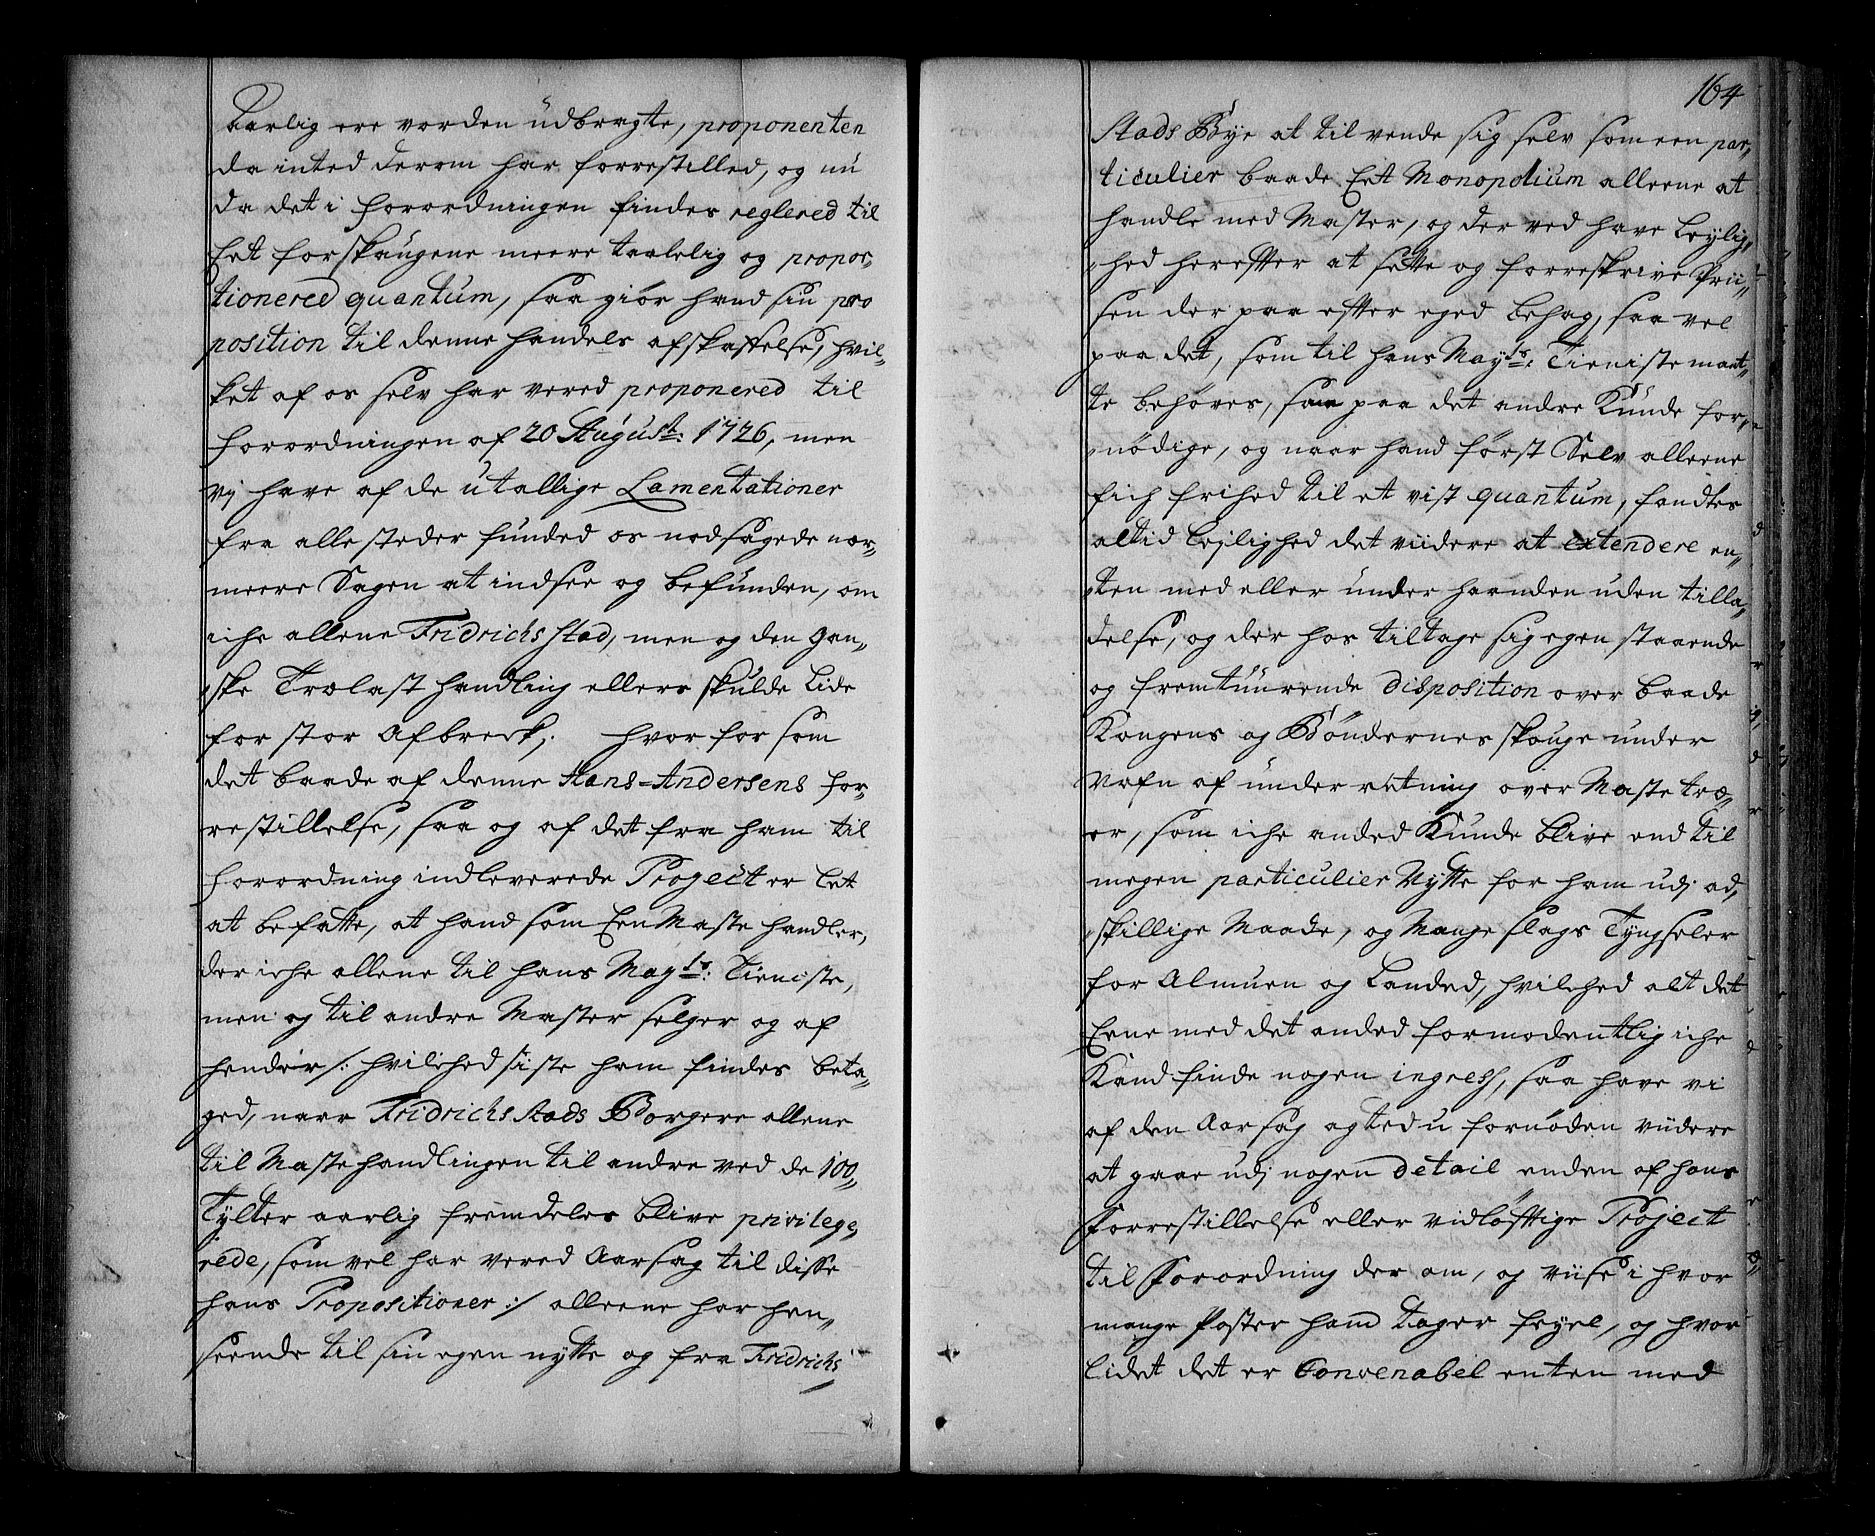 Aarlig ere vorden udbragte, proponenten
da inted derom har forrestilled, og nu
da det i forordningen findes reglered til
Eet forskougene meere taalelig og propor„
tionered quantum, saa giør hand sin pro
position til denne handels afskaffelse, hvil„
ket af os selv har vered proponered til
forordningen af 20 August: 1726, men
vj have af de utallige Lamentationer
fra alle steder funded os nødsagede nær„
meere Sagen at indsee og befunden, om
iche allene Fridrichsstad, men og den gan„
„ske Trælast handling ellers skulde Lide
for stor Afbreck; hvorfor som
det baade af denne Hans=Andersens for„
restillelse, saa og af det fra ham til
forordning indleverede Project er Let
at befatte, at hand som Een Maste handler,
der iche allene til hans May.ts: tieniste,
men og til andre Master selger og af
hender /: hvilched siste ham findes beta„
ged, naar Fridrichsstads Borgere allene
til Mastehandlingen til andre ved de 100„
Tylter aarlig fremdeles blive privilege„
rede, som vel har vered Aarsag til disse
hans Propositioner :/ alleene har hen„
seende til sin egen nytte og fra Fridrichs
164
Stads Bye at tilvende sig selv som een par„
ticulier baade Eet Monopolium alleene at
handle med Master, og derved have Leylig„
„hed herefter at sette og forreskrive Prii„
sen der paa efter eged behag, saa vel
paa det, som til hans May.ts: Tieniste mant„
te behøves, saa paa det andre Kunde for„
„nødige, og naar hand først Selv alleene
fich frihed til et vist quantum, fandtes
altid lejlighed det viidere at extendere en„
„ten med eller under haanden uden tilla„
delse, og der hos tiltage sig egen staaende
og fremtuurende disposition over baade
Kongens og Bøndernes skouge under
Nafn af underretning over Maste træ„
er, som iche anded Kunde blive end til
megen particulier Nytte for ham udj ad„
„skillige Maade, og Mange slags Tyngseler
for Almuen og Landed, hvilched alt det
Eene med det anded formodentlig iche
Kand finde nogen ingress, saa have vi
af den Aarsag agted u fornøden viidere
at gaae udj nogen detail enden af hans
Forrestillelse eller vidløftige Project
til Forordning der om, og viise i hvor
mange Poster hand tager feyel, og hvor
lidet det er Convenabel enten med